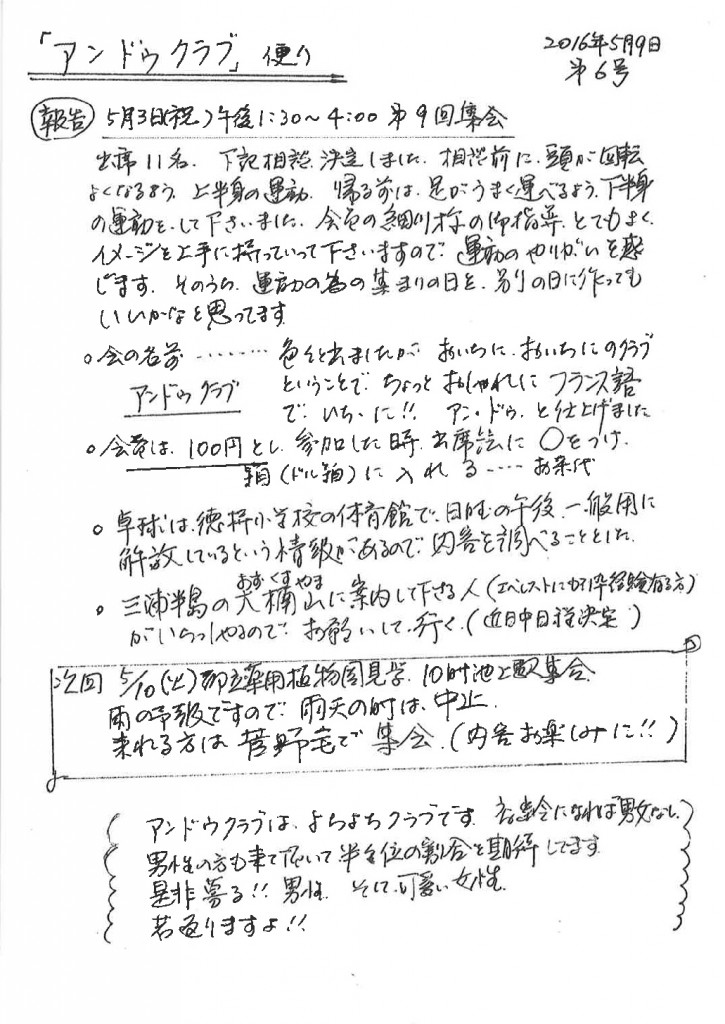 「アンドゥクラブ」便り
2016年5月9日
第6号
報告 5月3日(祝)午後1:30〜4:00 第9回集会
出席11名、下記相談、決定しました。相談前に、頭が回転
よくなるよう、上半身の運動、帰る前は、足がうまく運べるよう、下半身
の運動を、して下さいました。会員の細川様の御指導、とてもよく、
イメージを上手に持っていって下さいますので、運動のやりがいを感
じます。そのうち、運動の為の集まりの日を、別の日に作っても
いいかなと思ってます
○会の名前………色々と出ましたが おいちに、おいちにのクラブ
アンドゥクラブ ということで、ちょっとおしゃれに フランス語
で、いち、に!! アン・ドゥ、と仕上げました
○会費は、100円とし、参加した時、出席簿に○をつけ、
箱(ドル箱)に入れる……お茶代
○卓球は、徳持小学校の体育館で、日曜の午後、一般用に
解放しているという情報があるので、内容を調べることとした。
○三浦半島の大楠山に案内して下さる人(エベレストにも
おおぐすやま
がいらっしゃるので、お願いして、行く。(近日中日程決定)
次回 5/10(火)都立薬用植物園見学、10時池上駅集合
雨の予報ですので、雨天の時は、中止
来れる方は 菅野宅で集会。(内容お楽しみに!!)
アンドゥクラブは、よちよちクラブです。になれば男女なし。
男性の方も来て頂いて半々位の割合を期待してます
是非募る!! 男性、そして、可愛い女性、
若返りますよ!!